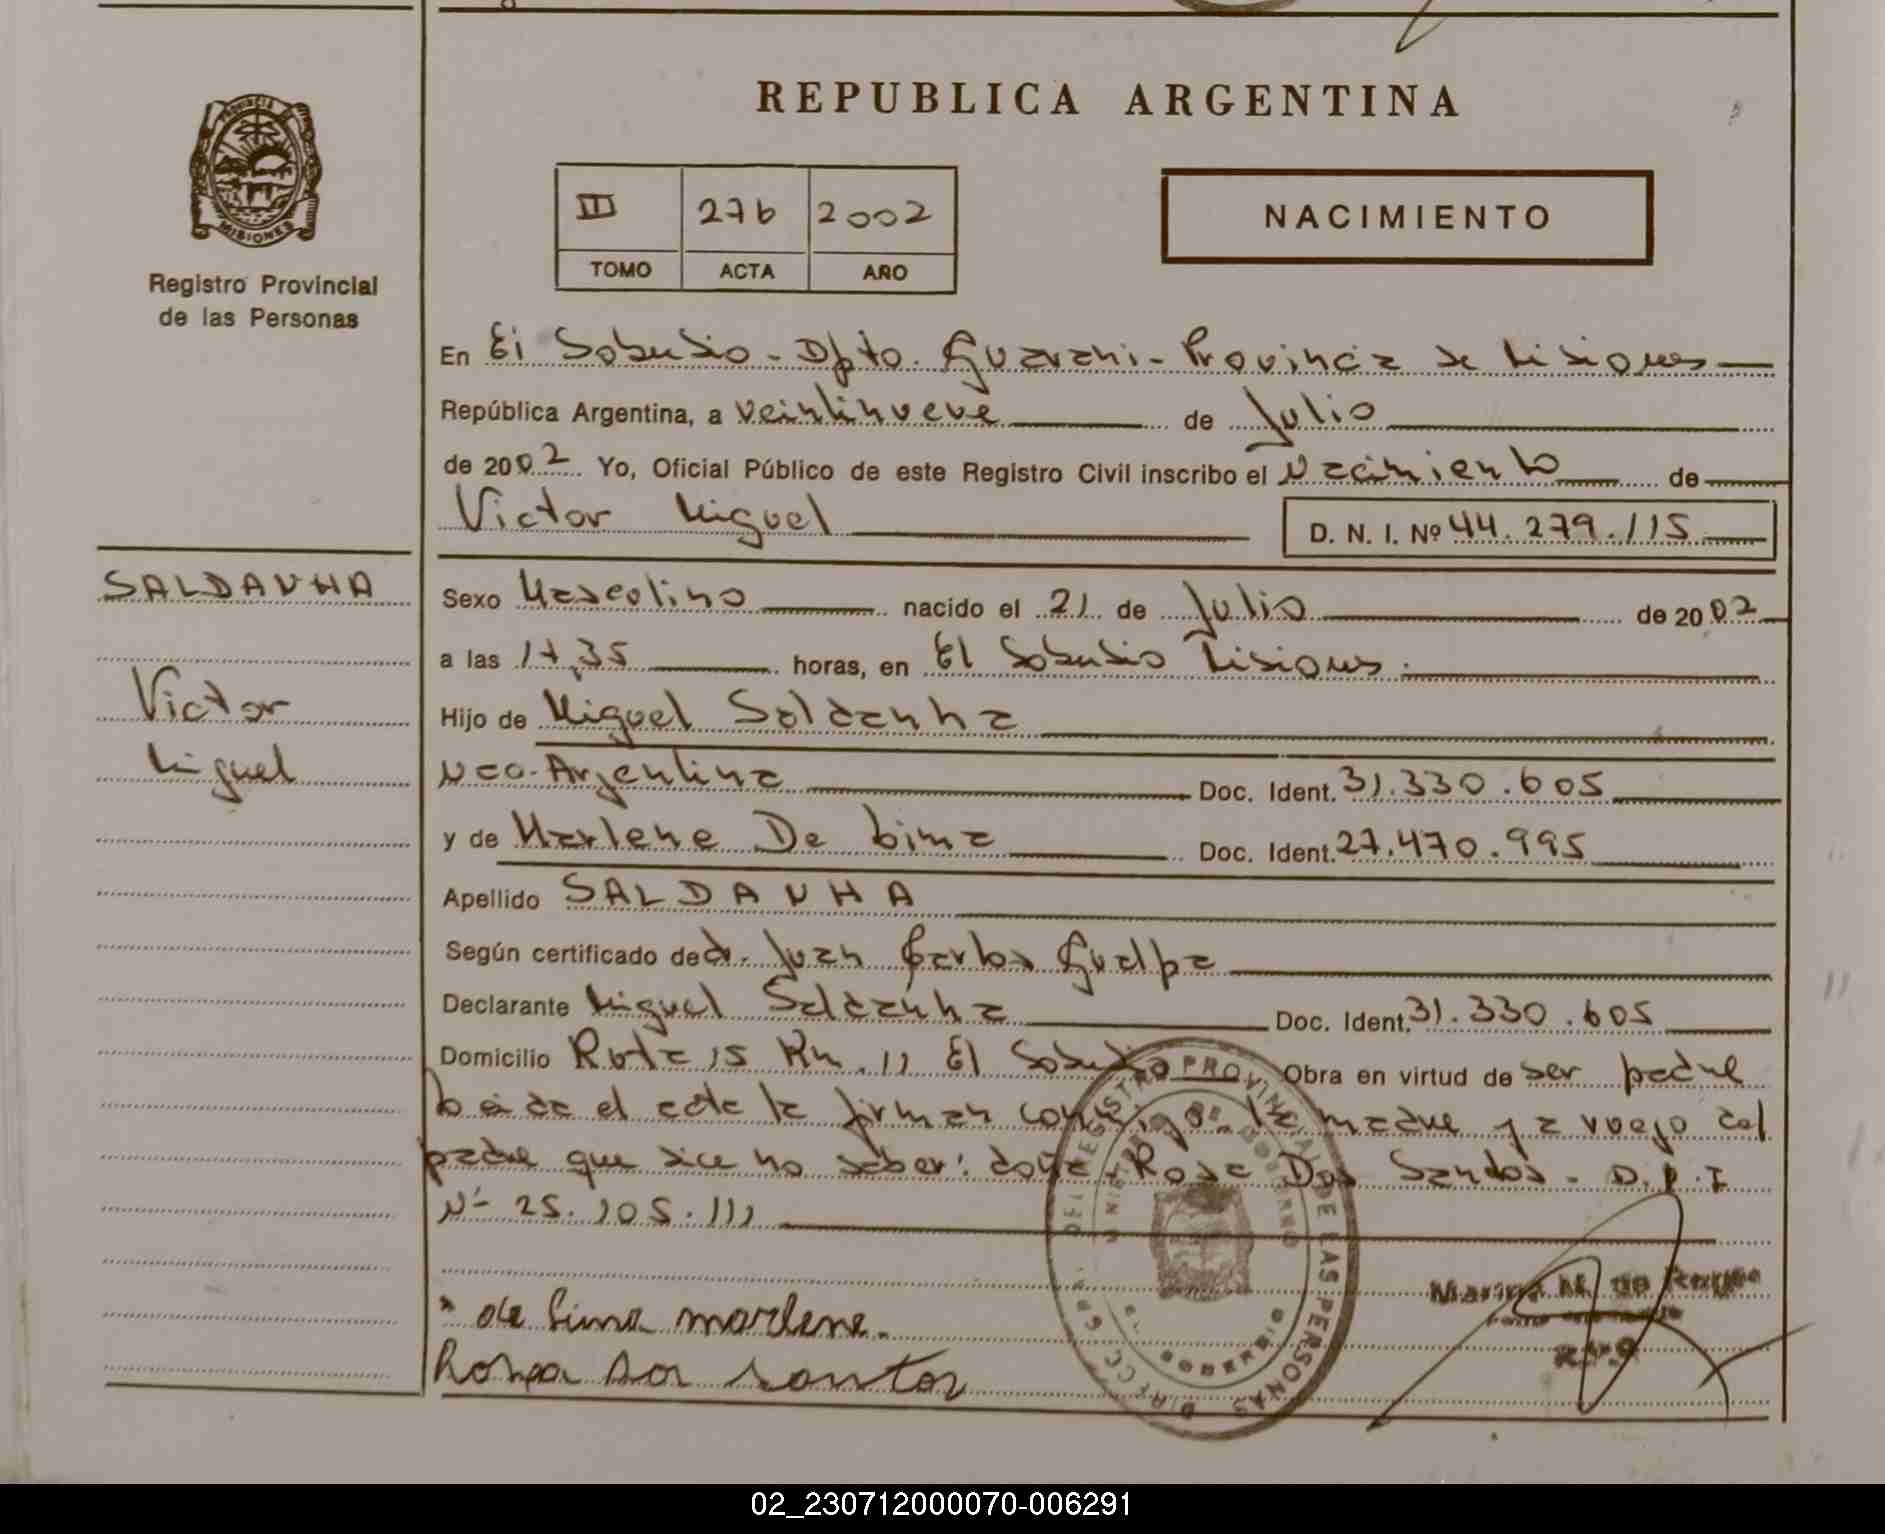 REPUBLICA ARGENTINA
PROVINCIA DE
MISIONES
Registro Provincial
de las Personas
III 276 2002
TOMO ACTA AÑO
NACIMIENTO
En El Soberbio - Dpto. Guarani - Provincia de Misiones
República Argentina, a veintinueve de Julio
de 2002 Yo, Oficial Público de este Registro Civil inscribo el Nacimiento de
Victor Miguel D. N. I. Nº 44.279.115
SALDANHA
Victor
Miguel
Sexo Masculino nacido el 21 de Julio de 2002
a las 17,35 horas, en El Soberbio Misiones.
Hijo de Miguel Saldanha
Nac. Argentina Doc. Ident. 31.330.605
y de Marlene De Lima Doc. Ident. 27.470.995
Apellido SALDANHA
Según certificado de dr. Juan Carlos Gualpa
Declarante Miguel Saldanha Doc. Ident. 31.330.605
Domicilio Ruta 15 Km. 11 El Soberbio Obra en virtud de ser padre
Leida el acta la firman conmigo la madre y a ruego del
padre que dice no saber: doña Rosa Dos Santos - D.N.I
Nº 25.105.111
de Lima marlene.
Rosa dos santos
Marina M. de
REGISTRO PROVINCIAL DE LAS PERSONAS
MINISTERIO DE GOBIERNO
02_230712000070-006291